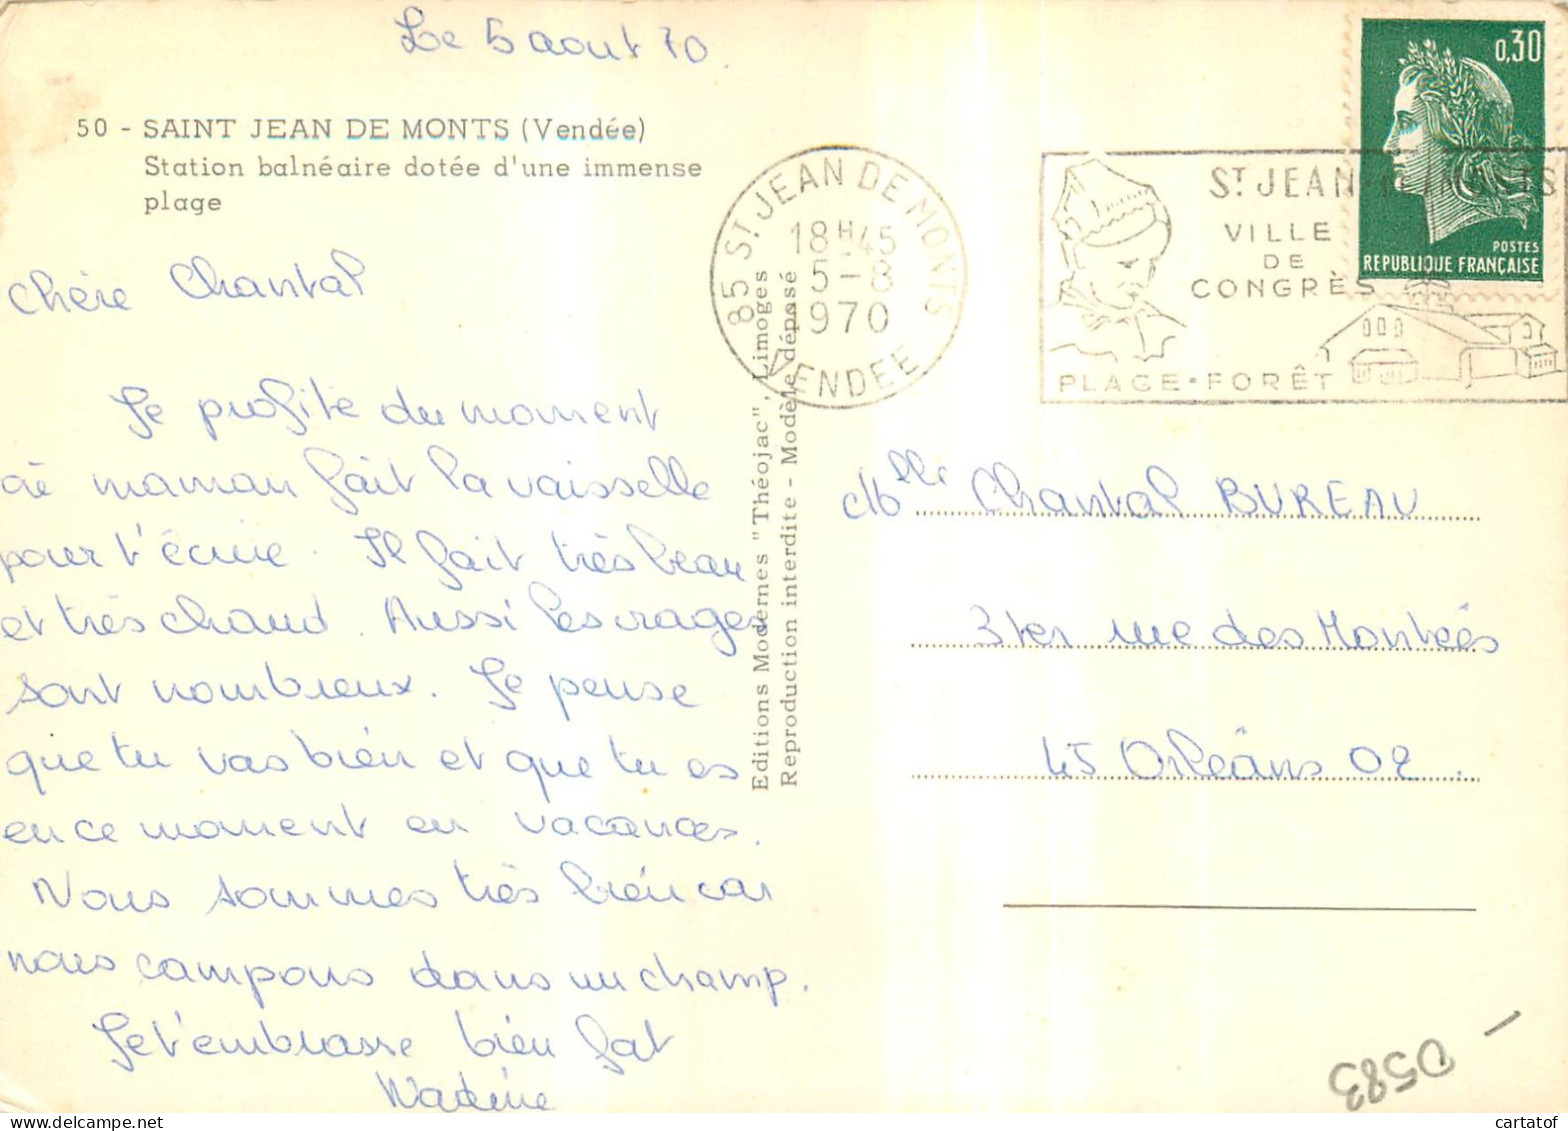 Le 5 aout 70.
50 - SAINT JEAN DE MONTS (Vendée)
Station balnéaire dotée d'une immense
plage
Chère Chantal
Je profite du moment
où maman fait la vaisselle
pour t'écrire. Il fait très beau
et très chaud. Aussi les orages
sont nombreux. Je pense
que tu vas bien et que tu es
en ce moment en vacances.
Nous sommes très bien car
nous campons dans un champ.
Je t'embrasse bien fort
Nadine
Editions Modernes "Théojac", Limoges
Reproduction interdite - Modèle déposé
85 ST. JEAN DE MONTS
18H45
5-8
1970
VENDEE
ST. JEAN DE MONTS
VILLE
DE
CONGRÈS
PLAGE • FORÊT
0,30
POSTES
REPUBLIQUE FRANÇAISE
Melle Chantal BUREAU
3ter rue des Montées
45 Orléans 02.
D583
cartatof